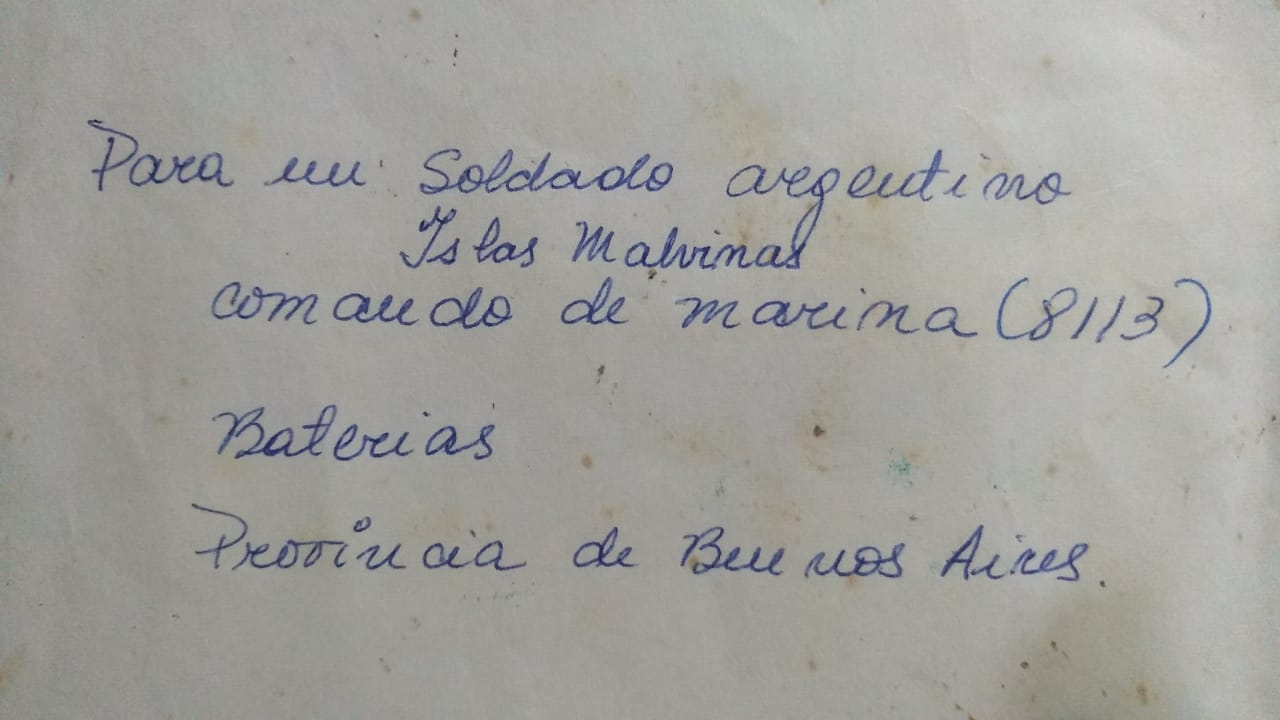 Para un Soldado argentino
Islas Malvinas
comando de marina (8113)
Baterias
Provincia de Buenos Aires.